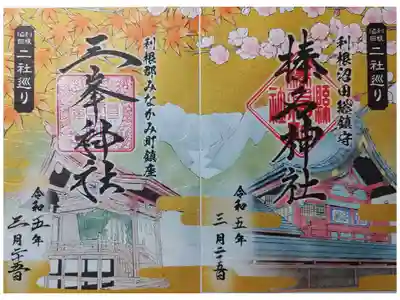 利根沼田
二社巡り
利根沼田総鎮守
榛名神社
令和五年
三月二十五日
利根郡みなかみ町鎮座
三峯神社
令和五年
三月二十五日
利根沼田
二社巡り